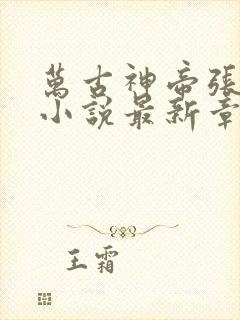 萬古神帝張
小說最新章
王霜